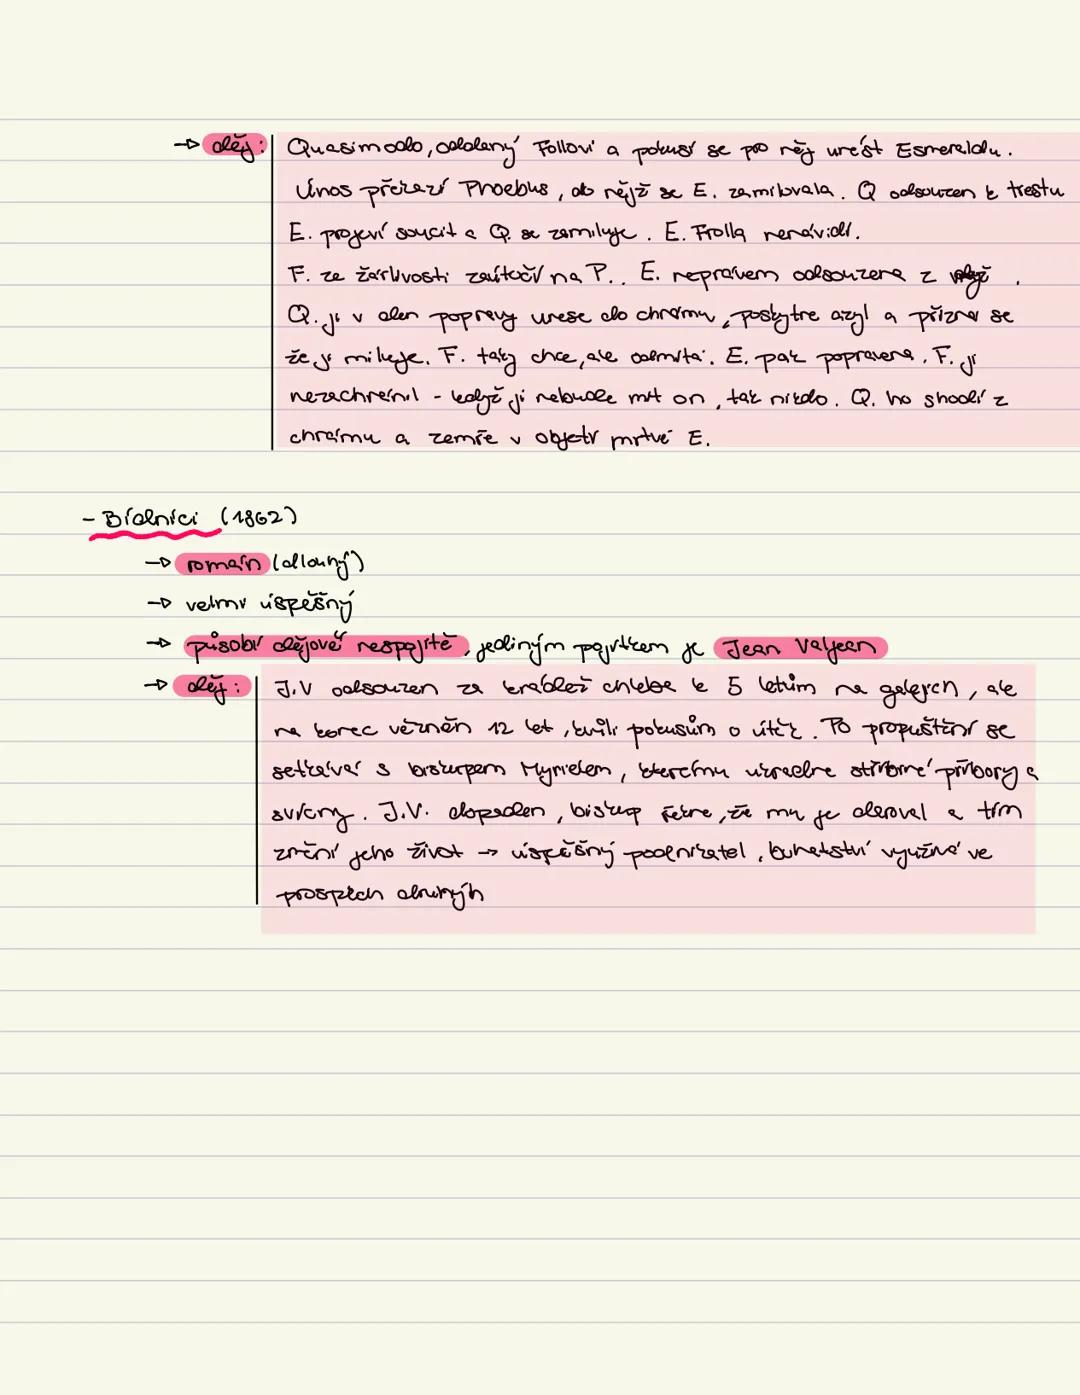 → děj: Quasimodo, oddaný Follovi a pokusí se pro něj unést Esmeraldu.
Únos překazí Phoebus, do nějž se E. zamilovala. Q odsouzen k trestu
E. projeví soucit a Q. se zamiluje. E. Frolla nenávidí.
F. ze žárlivosti zaútočí na P.. E. neprávem odsouzena z
Q. ji v den popravy unese do chrámu, poskytne azyl a přizná se
že ji miluje. F. taky chce, ale odmítá. E. pak popravena. F. ji
nezachránil - když ji nebude mít on, tak nikdo. Q. ho shodí z
chrámu a zemře v objetí mrtvé E.
- Bídníci (1862)
→ román (dlouhý)
→ velmi úspěšný
→ působí dějově nespojitě, jediným pojítkem je Jean Valjean
→ děj: J.V odsouzen za krádež chleba k 5 letům na galejích, ale
na konec vězněn 12 let, kvůli pokusům o útěk. Po propuštění se
setkává s biskupem Myrielem, kterému ukradne stříbrné příbory a
svícny. J.V. dopaden, biskup řekne, že mu je daroval a tím
změní jeho život → úspěšný podnikatel, bohatství využívá ve
prospěch druhých